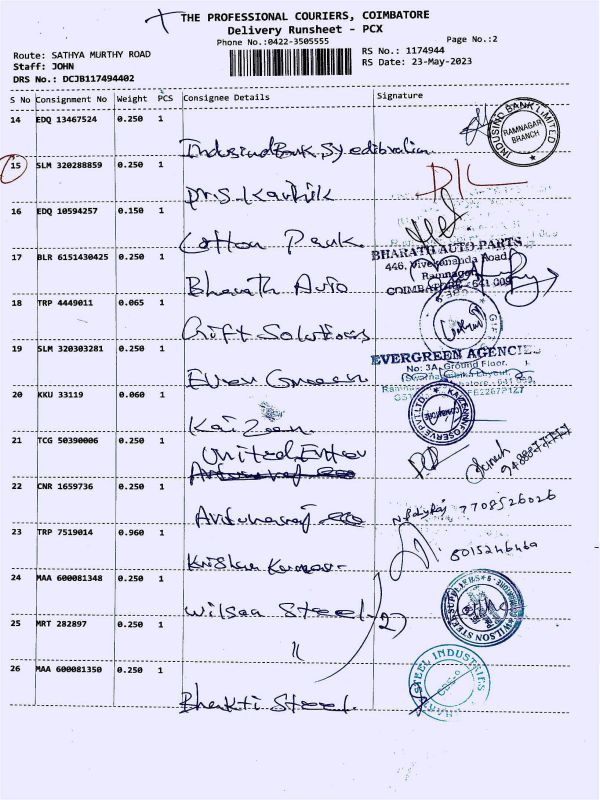 THE PROFESSIONAL COURIERS, COIMBATORE
Delivery Runsheet - PCX
Phone No.:0422-3505555
Page No.:2
Route: SATHYA MURTHY ROAD
Staff: JOHN
DRS No.: DCJB117494402
RS No.: 1174944
RS Date: 23-May-2023
S No Consignment No Weight PCS Consignee Details Signature
14 EDQ 13467524 0.250 1
IndusindBank
INDUSIND BANK LIMITED
RAMNAGAR
BRANCH
15 SLM 320288859 0.250 1
Dr.S. Karthik
16 EDQ 10594257 0.150 1
Cotton
17 BLR 6151430425 0.250 1
Bharath Auto
BHARATH AUTO PARTS
446, Vivekananda Road,
Ramnagar
COIMBATORE - 641 009
18 TRP 4449011 0.065 1
Gift Solutions
19 SLM 320303281 0.250 1
Ever Green
EVERGREEN AGENCIES
No: 3A, Ground Floor,
20 KKU 33119 0.060 1
Kaizen
21 TCG 50390006 0.250 1
United
22 CNR 1659736 0.250 1
7708526026
23 TRP 7519014 0.960 1
Krishna Kumar
24 MAA 600081348 0.250 1
Wilson Steel
WILSON STEEL
25 MRT 282897 0.250 1
"
26 MAA 600081350 0.250 1
Bhakti Steel
STEEL INDUSTRIES